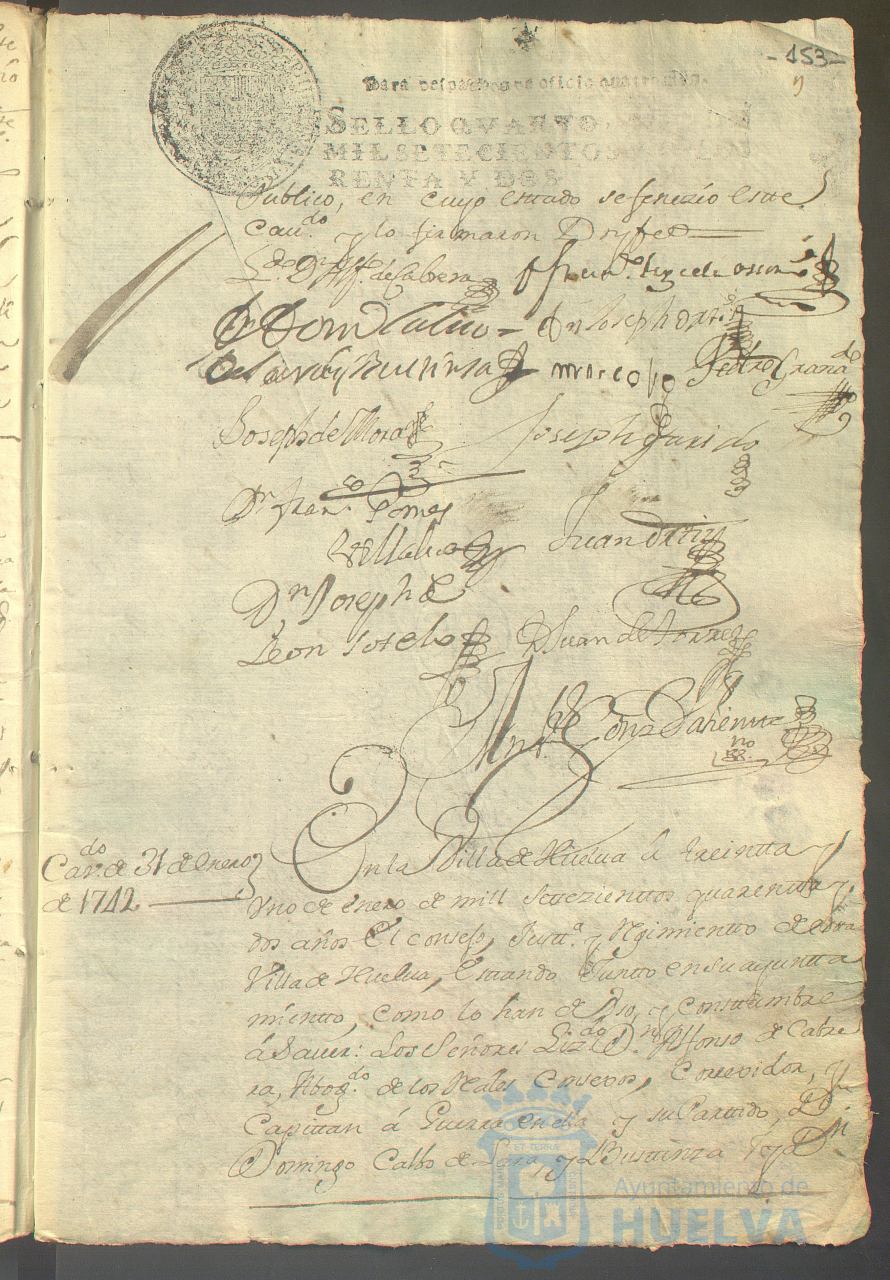 -153-
Para despachos de oficio quatro mrs.
SELLO QVARTO,
MIL SETECIENTOS
RENTA Y DOS
Publico, en cuyo esttado sefenezio estte
Cau.do y lo firmaron Doyfee
Lz.do Dn Alf.o de Cabrera
Dn Joseph
Pedro Granado
Joseph de Mora Joseph Garrido
Dn Fran.co Gomez
Villalva Juan Ortiz
Dn Joseph de
Leon D Juan de Torres
Cav.do de 31 de enero
de 1742
En la Villa de Huelua â treintta y
Uno de enero de mill settezienttos quarentta y
dos años El consejo, Justt.a y Rejimientto de esta
Villa de Huelua, Esttando Juntto en su ayuntta
mientto, como lo han de Uso, y Consttumbre
â Sauer: Los Señores Liz.do Dn Alfonso de Cabre
ra, Abog.do de los Reales Consejos, Correxidor, y
Capittan â Guerra en ella y su Parttido, Dn
Domingo Calbo de Lara y Busttinza
Ayuntamiento de
HUELVA